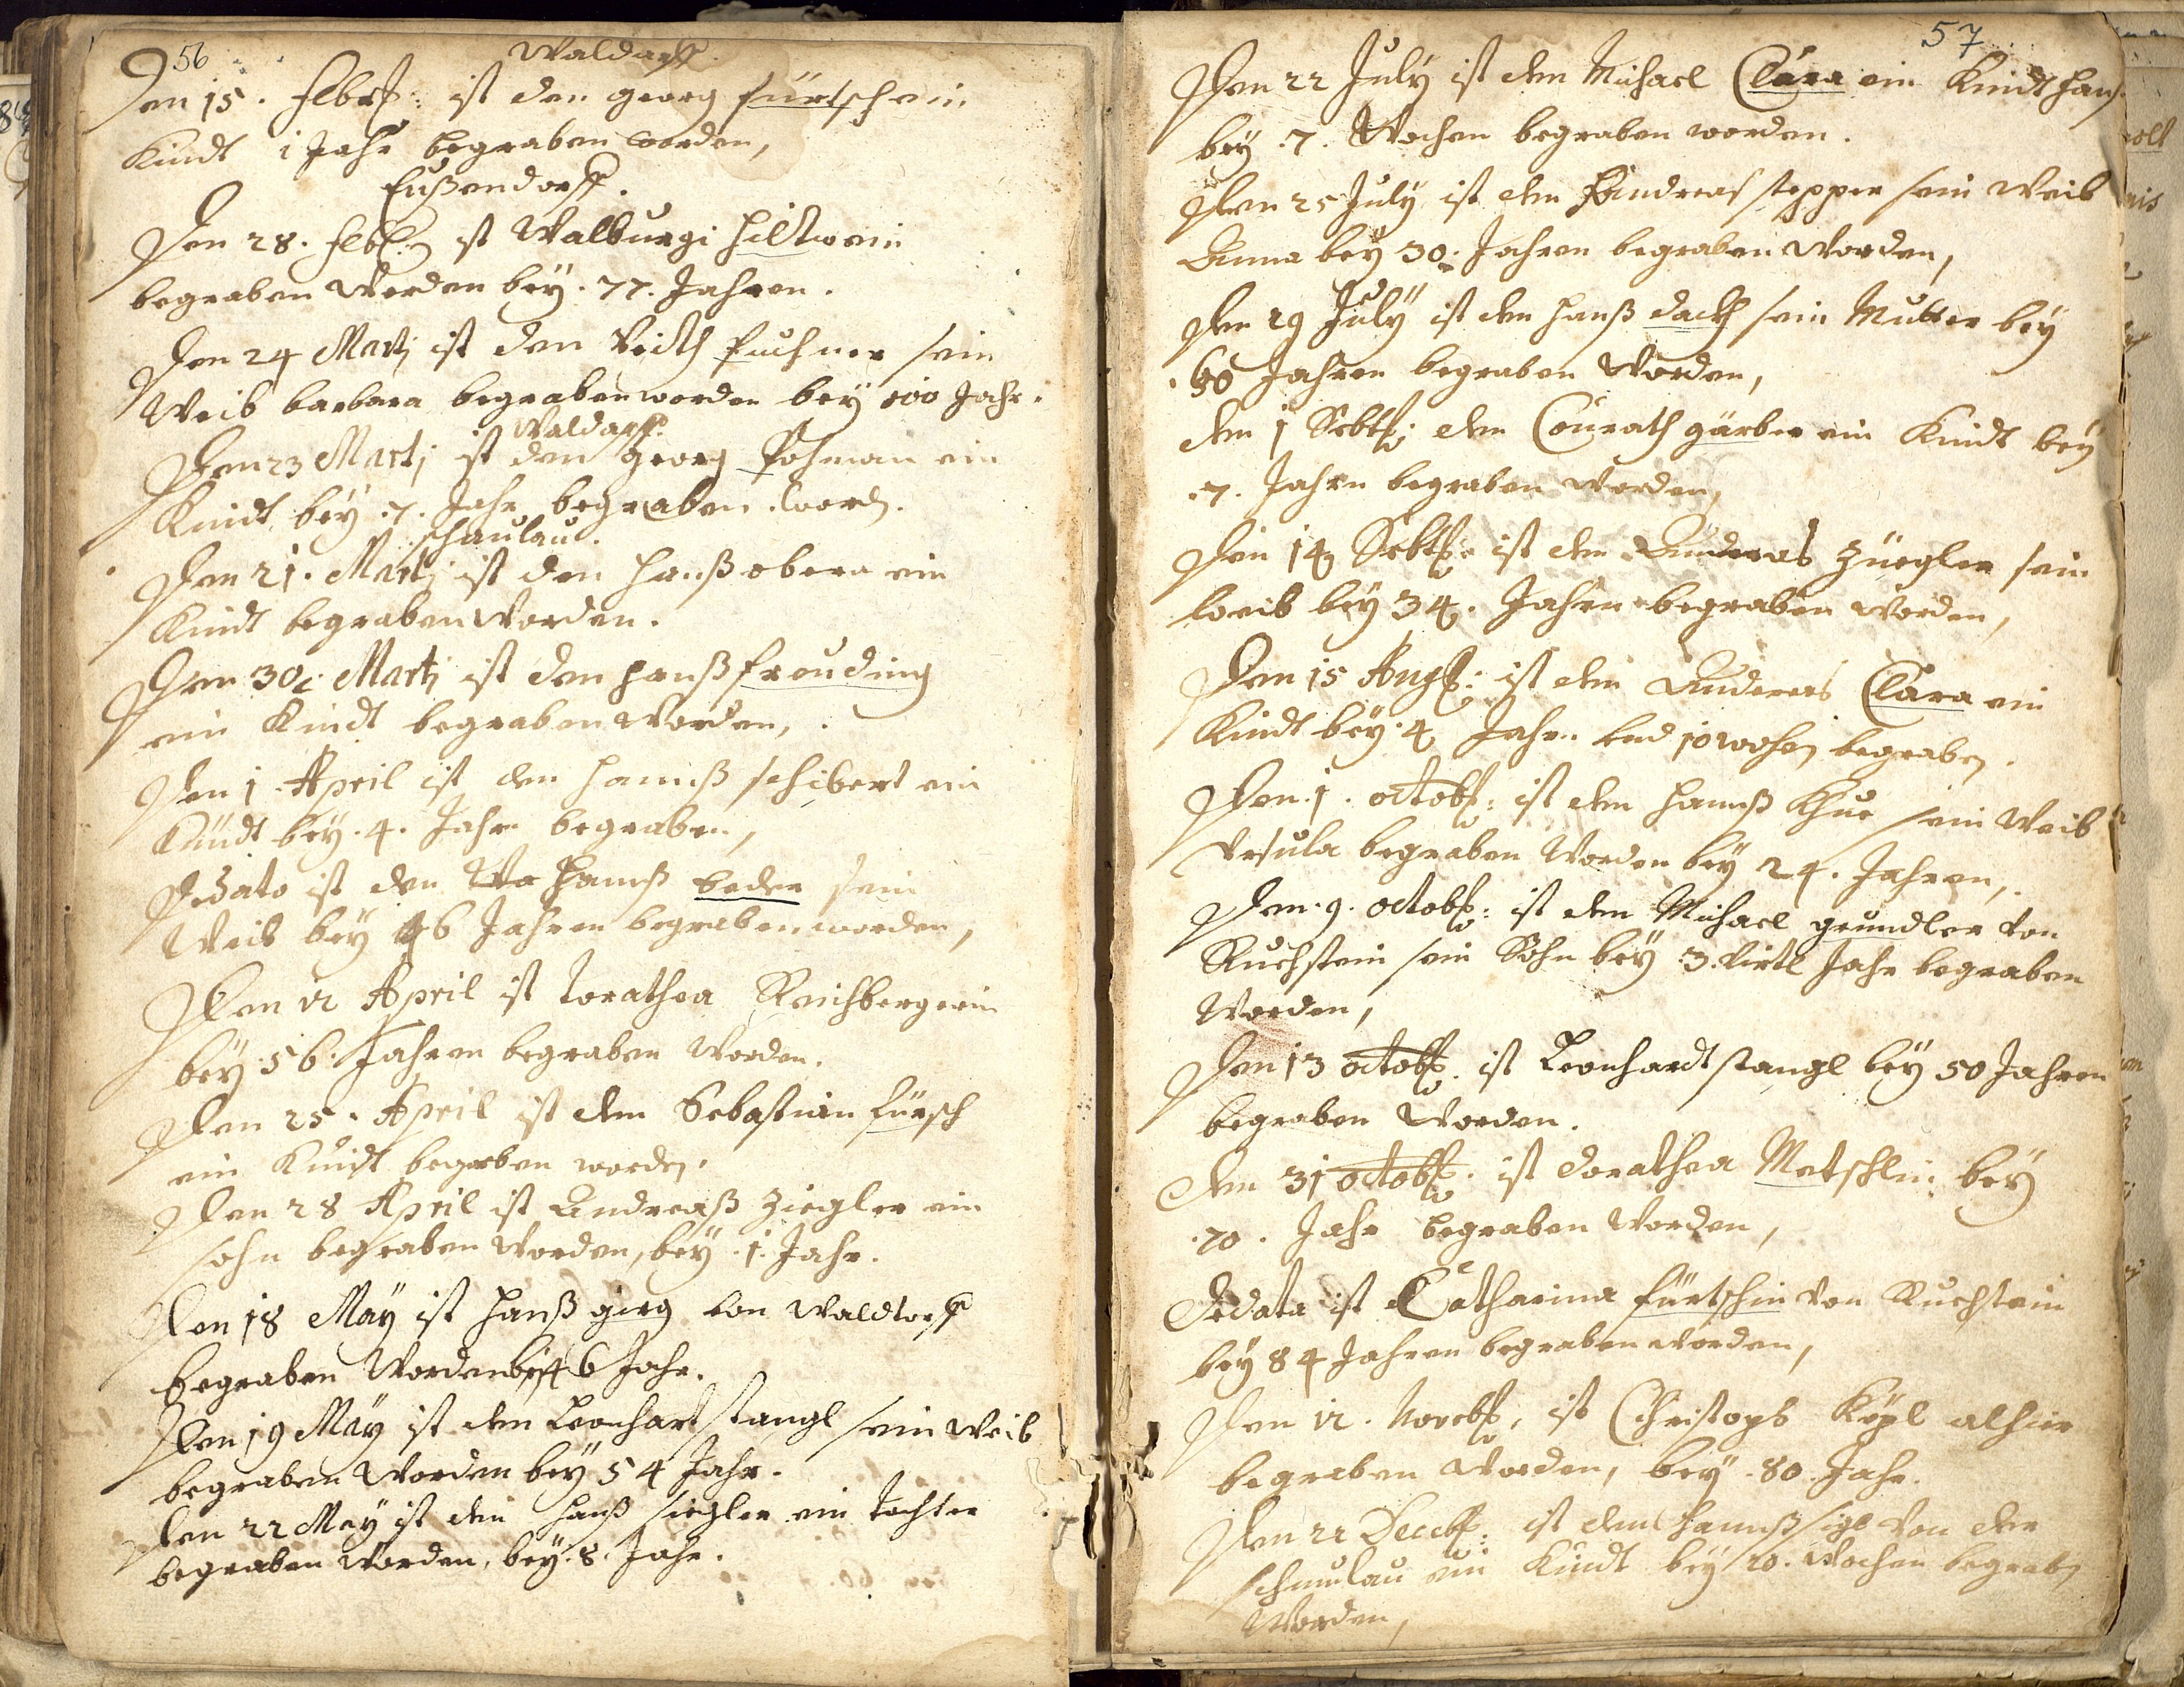 56
Waldorff.
Den 15. Febr: ist den georg fürtsch ein
Kindt 1 Jahr begraben worden,
Eußendorff.
Den 28. Feb: ist Walburgi Hiltwein
begraben Worden bey. 77. Jahren.
Den 24 Martj ist den Veith Puchner sein
Weib barbara begraben worden bey 100 Jahr.
Waldorff.
Den 23 Martj ist den georg Pohman ein
Kindt bey .7. Jahr begraben word.
schaulau.
Den 21. Martj ist den Hanß obern ein
Kindt begraben Worden.
Den 30. Martj ist den Hanß freuding
ein Kindt begraben Worden,
Den 1 April ist den Hannß schibert ein
Kindt bey .4. Jahr begraben,
Dedato ist den Hanß beder sein
Weib bey 46 Jahren begraben worden,
Den 12 April ist Torathea Reichbergerin
bey 56. Jahren begraben Worden.
Den 25. April ist dem Sebastian fürsch
ein Kindt begraben worden.
Den 28 April ist Andreaß Ziegler ein
sohn begraben Worden, bey .1. Jahr.
Den 18 May ist Hanß girg von Waldtorff
begraben Worden bey 46 Jahr.
Den 19 May ist dem Leonhart stangl sein Weib
begraben Worden bey 54 Jahr.
Den 22 May ist den Hanß sichler ein Tochter
begraben Worden, bey .8. Jahr.
57
Den 22 July ist dem Michael Clara ein Kindt Hanß
bey .7. Wochen begraben worden.
Den 25 July ist dem Andreas stepper sein Weib
Anna bey 30. Jahren begraben Worden,
Den 29 July ist den Hanß dackh sein Mutter bey
Jahren begraben Worden,
den 1 Sebt: dem Conrath gärber ein Kindt bey
.7. Jahrn begraben worden,
Den 14 Sebt: ist dem Anderas Züegler sein
weib bey 34. Jahrn begraben Worden,
Den 15 Aug: ist dem Anderas Clara ein
Kindt bey 4 Jahrn vnd 10 wohen begraben.
Den .1. octob: ist dem Hannß Khue sein Weib
Vrsula begraben Worden bey 24. Jahren,
Den .9. octob: ist dem Michael grundler von
Ruehstein sein Sohn bey .3. virtl Jahr begraben
Worden,
Den 13 octob. ist Leonhardt stangl bey 50 Jahren
begraben Worden.
Den 31 octob. ist dorathea Metschlin bey
.70. Jahr begraben Worden,
Dedata ist Catharina fürtschin von Ruehstein
bey 84 Jahren begraben worden,
Den 12. Noveb. ist Christoph Köpl alhier
begraben Worden, bey .80. Jahr.
Den 22 Deceb: ist dem Hannß sigl von der
schaulau ein Kindt bey 20. Wochen begraben
Worden,